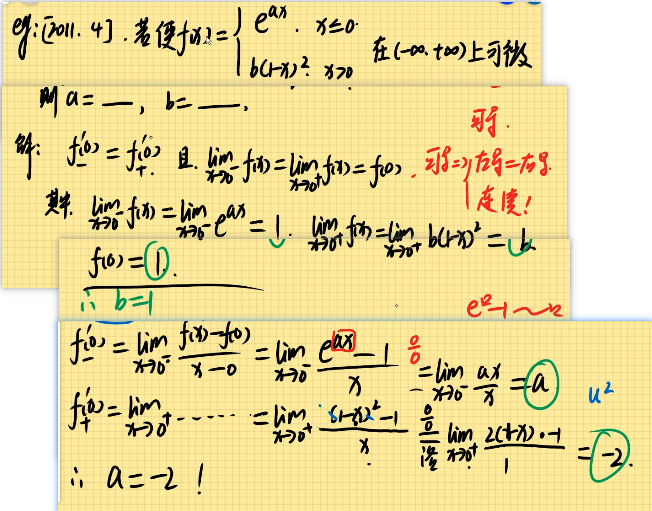 eg:[2011.4].若使f(x)={ e^{ax}. x≤0
b(1-x)². x>0 在(-∞,+∞)上可微
则 a=___, b=___.
可导.
解: f'₋(0) = f'₊(0) 且. lim_{x→0⁻} f(x) = lim_{x→0⁺} f(x) = f(0). 可导=>{ 左导=右导.
连续!
其中. lim_{x→0⁻} f(x) = lim_{x→0⁻} e^{ax} = 1. lim_{x→0⁺} f(x) = lim_{x→0⁺} b(1-x)² = b
f(0) = 1.
∴ b=1
f'₋(0) = lim_{x→0⁻} \frac{f(x)-f(0)}{x-0} = lim_{x→0⁻} \frac{e^{ax}-1}{x} \frac{0}{0} = lim_{x→0⁻} \frac{ax}{x} = a u²
f'₊(0) = lim_{x→0⁺} ------ = lim_{x→0⁺} \frac{(1-x)²-1}{x} \frac{0}{0} 洛 lim_{x→0⁺} \frac{2(1-x)·-1}{1} = -2.
∴ a=-2 !